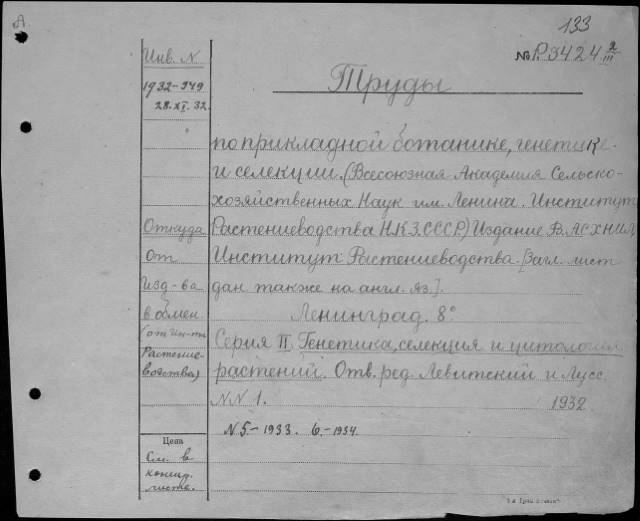 А
133
№ P.9424 2/III
Инв. N
1932-949
28.XI.32.
Труды
по прикладной ботанике, генетике
и селекции. (Всесоюзная Академия Сельско-
хозяйственных Наук им. Ленина. Институт
Откуда
Растениеводства НКЗ.СССР.) Издание В.АСХНИЛ
От
Институт Растениеводства. [Загл. лист
Изд-ва
дан также на англ. яз.].
в обмен
Ленинград. 8°
(от Ин-та
Растение-
водства)
Серия II. Генетика, селекция и цитология
растений. Отв. ред. Левитский и Лусс
NN 1. 1932
N 5.-1933. 6.-1934.
Цена
См. в
конце
листе.